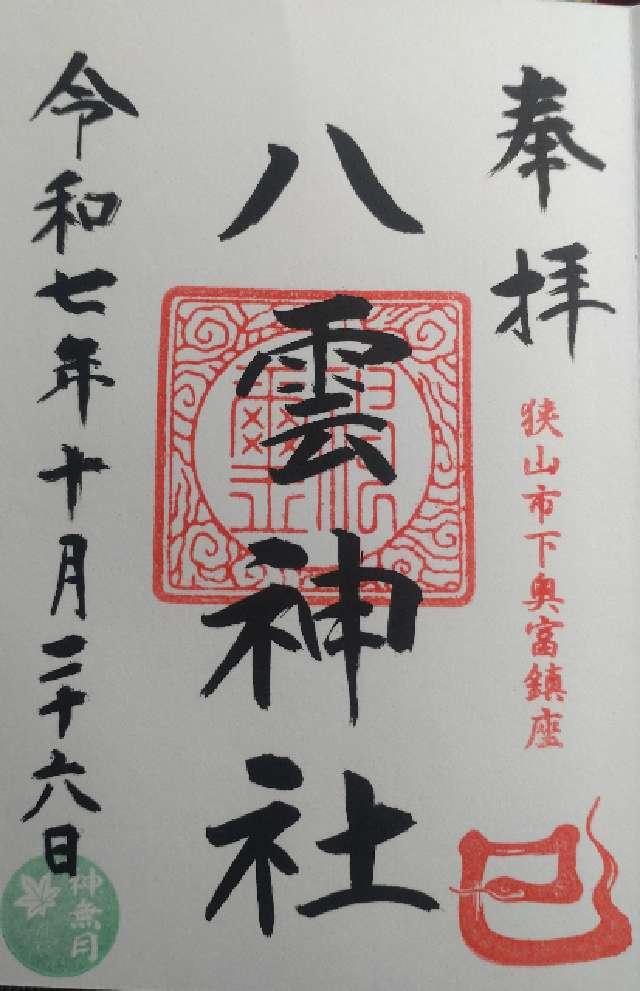 奉拝
狭山市下奥富鎮座
八雲神社
令和七年十月二十六日
神無月
巳